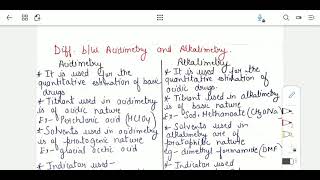 Diff. b/w Acidimetry and Alkalimetry.
Acidimetry
* It is used for the
quantitative estimation of basic
drugs.
* Titrant used in acidimetry
is of acidic nature
Ex- Perchloric acid (HClO4)
* Solvents used in acidimetry
is of protogenic nature
Ex- glacial acetic acid
* Indicator used-
Alkalimetry
* It is used for the
quantitative estimation of
acidic drugs.
* Titrant used in alkalimetry
is of basic nature
Ex- Sod. Methanoate (CH3ONa)
* Solvents used in
alkalimetry are of
protophilic nature
eg- dimethyl formamide (DMF)
* Indicator used